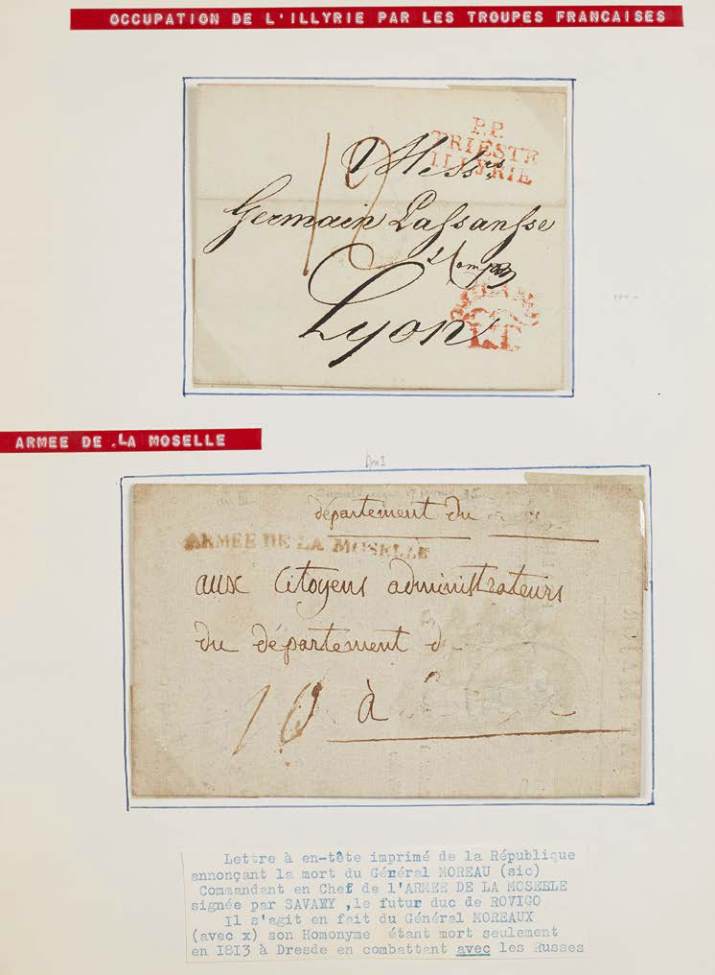 OCCUPATION DE L'ILLYRIE PAR LES TROUPES FRANCAISES
P.P.
TRIESTE
ILLYRIE
Mess.rs
Germain Lassansse
Lyon
L.T.
ARMEE DE LA MOSELLE
département du
ARMEE DE LA MOSELLE
aux Citoyens administrateurs
du département d
10 à
Lettre à en-tête imprimé de la République
annonçant la mort du Général MOREAU (sic)
Commandant en Chef de l'ARMEE DE LA MOSELLE
signée par SAVARY ,le futur duc de ROVIGO
Il s'agit en fait du Général MOREAUX
(avec x) son Homonyme étant mort seulement
en 1813 à Dresde en combattant avec les Russes